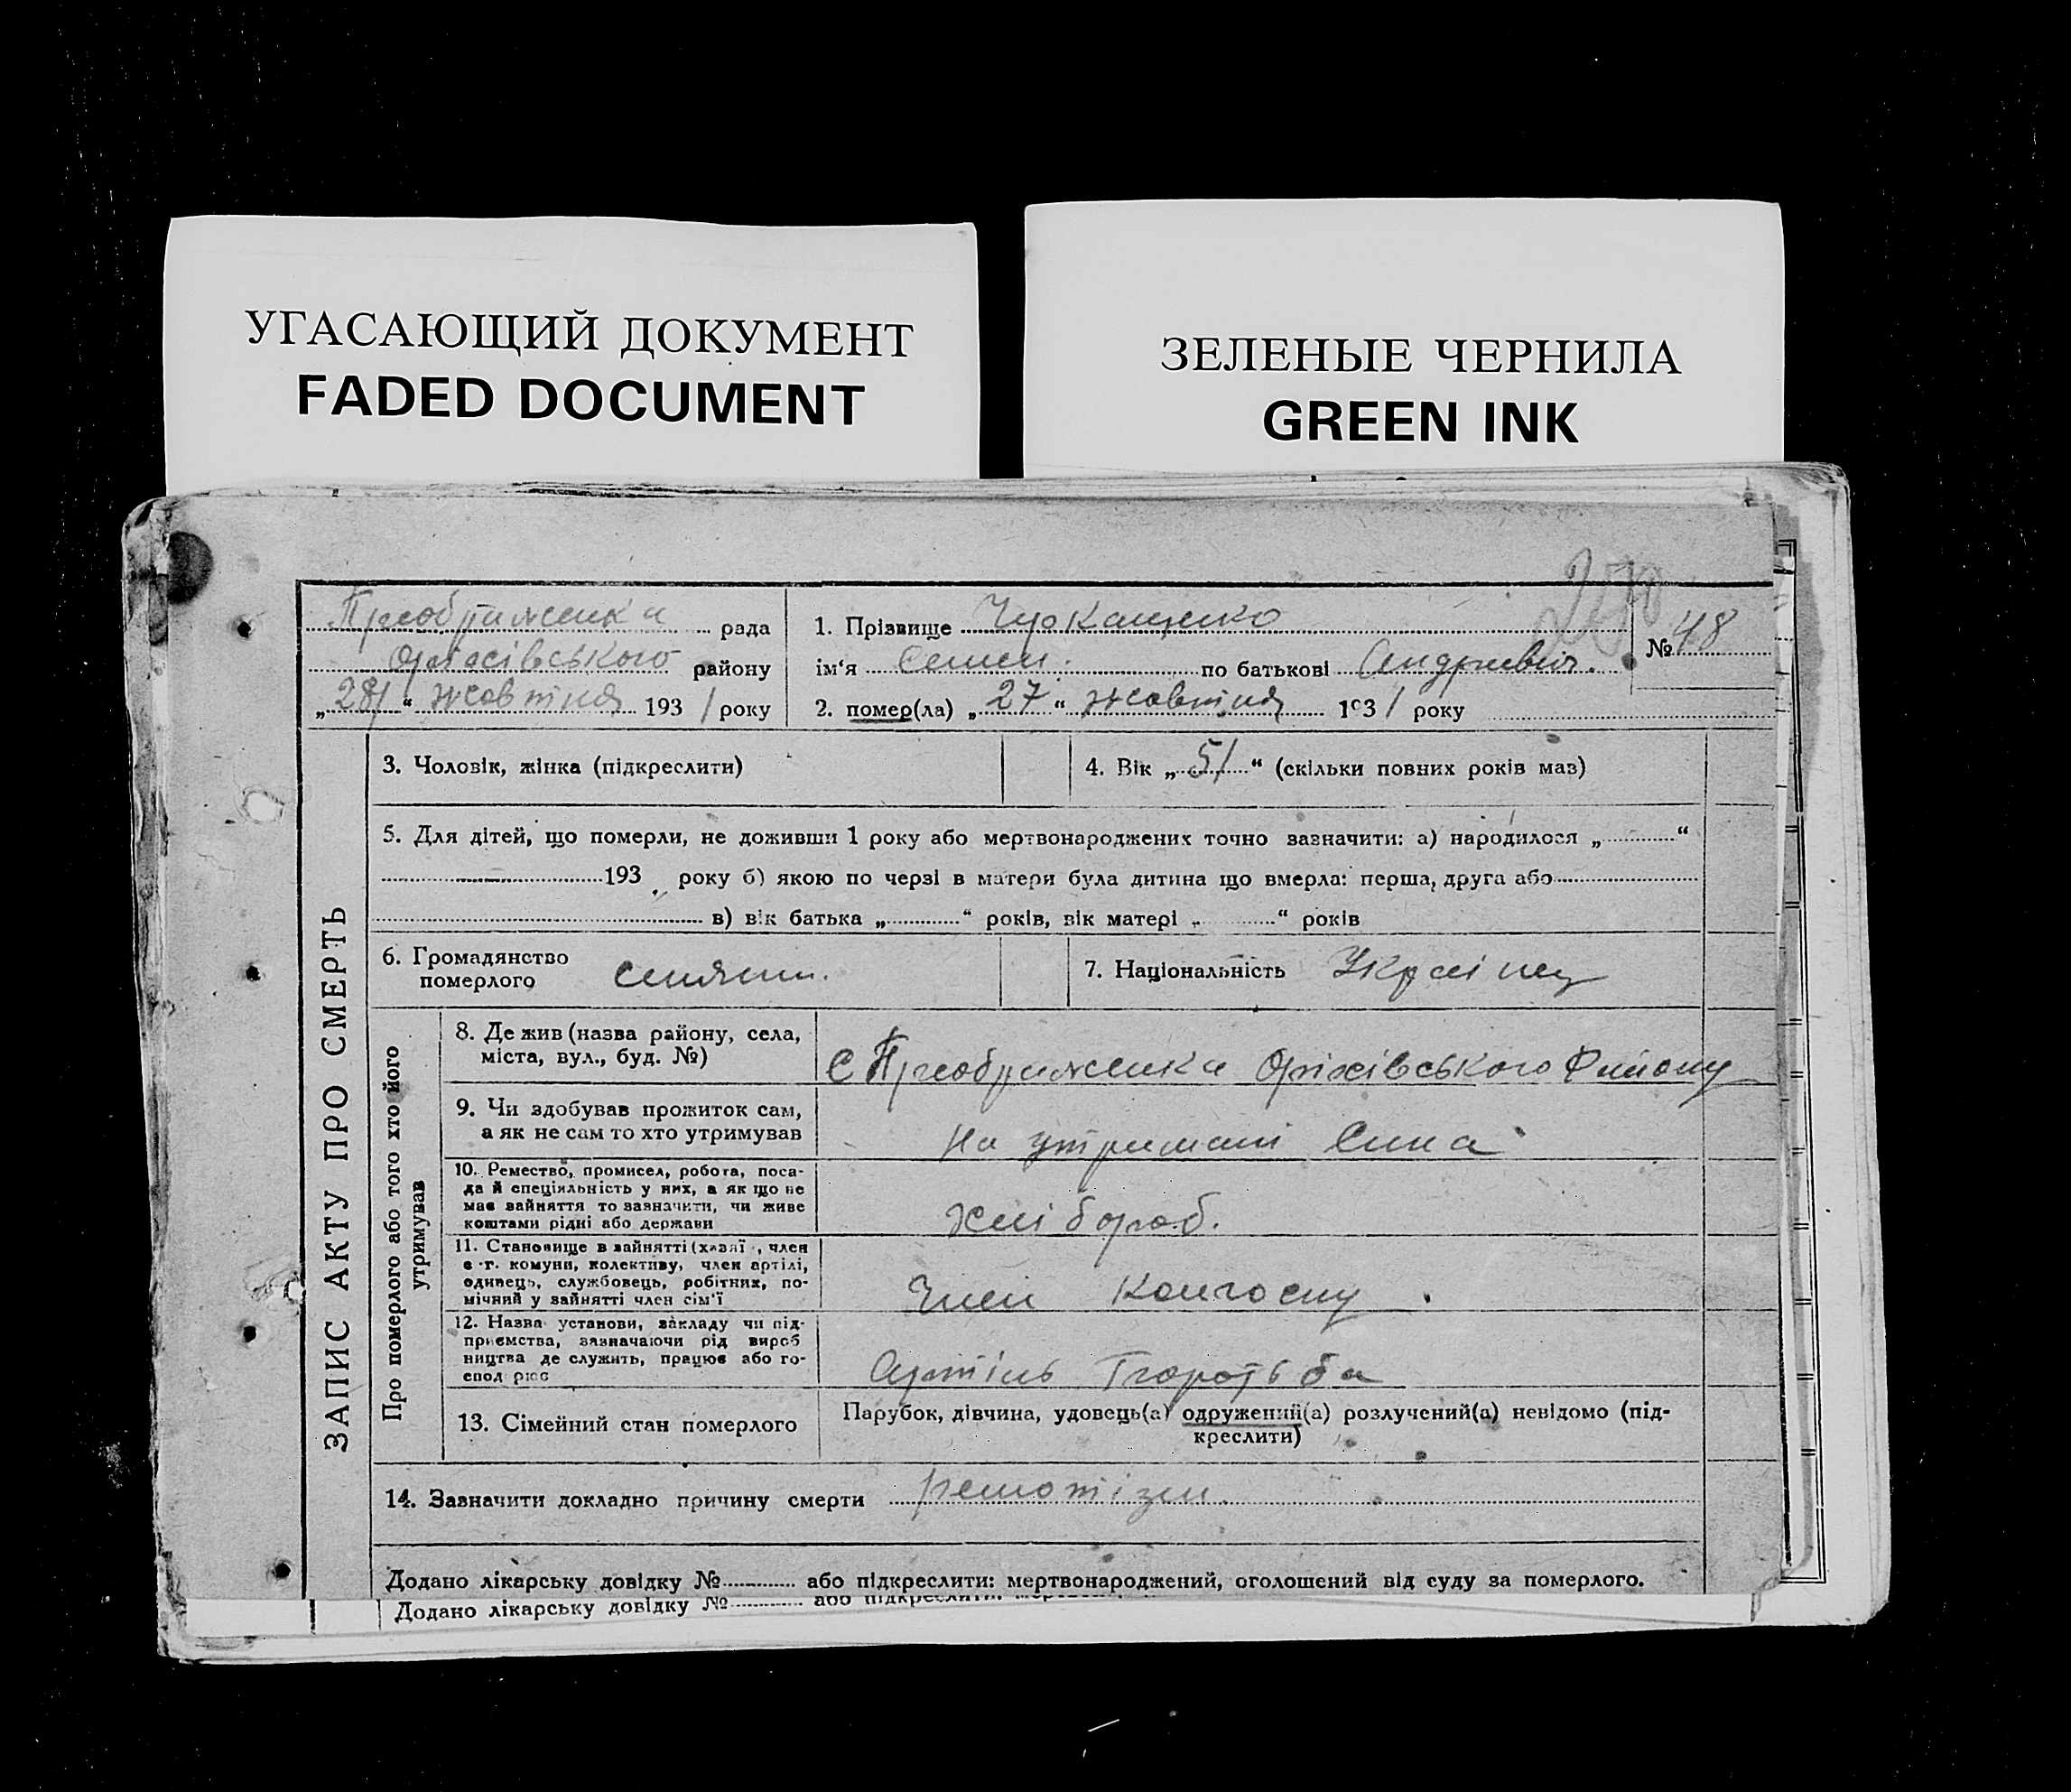 УГАСАЮЩИЙ ДОКУМЕНТ
FADED DOCUMENT
ЗЕЛЕНЫЕ ЧЕРНИЛА
GREEN INK
Преображенка рада
Оріхівського району
„28“ жовтня 1931 року
1. Прізвище
ім‘я Семен. по батькові Андрієвич.
2. помер(ла) „27“ жовтня 1931 року
№ 48
ЗАПИС АКТУ ПРО СМЕРТЬ
3. Чоловік, жінка (підкреслити)
4. Вік „51“ (скільки повних років має)
5. Для дітей, що померли, не доживши 1 року або мертвонароджених точно зазначити: а) народилося „ “
193 року б) якою по черзі в матери була дитина що вмерла: перша, друга або
в) вік батька „ “ років, вік матері „ “ років
6. Громадянство
померлого селянин.
7. Національність Українец
Про померлого або того хто його
утримував
8. Де жив (назва району, села,
міста, вул., буд. №)
С Преображенка Оріхівського Району
9. Чи здобував прожиток сам,
а як не сам то хто утримував
На утримані Сина
10. Ремество, промисел, робота, поса-
да й спеціяльність у них, а як що не
має зайняття то зазначити, чи живе
коштами рідні або держави
хлібороб.
11. Становище в зайнятті (хазяї , член
с-г. комуни, колективу, член артілі,
одинець, службовець, робітник, по-
мічний у зайнятті член сім‘ї
Член Колгоспу.
12. Назва установи, закладу чи під-
приємства, зазначаючи рід вироб
ництва де служить, працює або го-
спод рює
Артіль
13. Сімейний стан померлого
Парубок, дівчина, удовець(а) одружений(а) розлучений(а) невідомо (під-
креслити)
14. Зазначити докладно причину смерти ревмотізм.
Додано лікарську довідку № або підкреслити: мертвонароджений, оголошений від суду за померлого.
Додано лікарську довідку № або підкреслити: